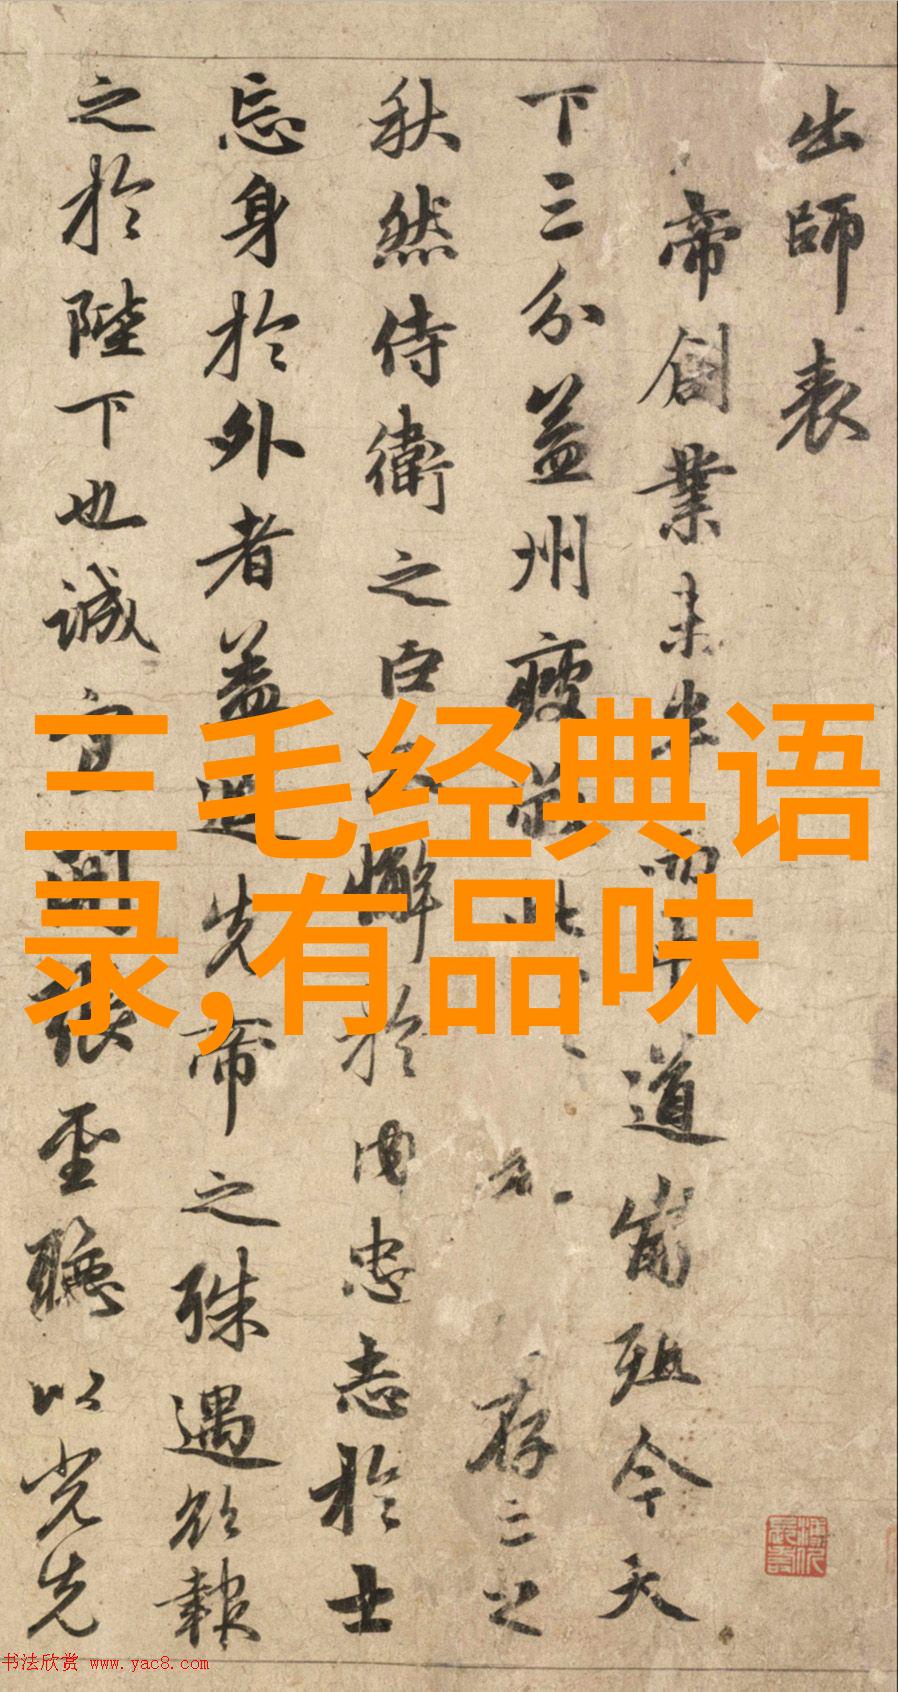 出師表
帝創業未半而中道崩殂今天
下三分益州疲敝此存之
秋然侍衛之臣不懈於内忠志於士
忘身於外者蓋追先帝之殊遇欲報
之於陛下也誠宜開張聖聽以光先
三毛经典语
录,有品味
书法欣赏 www.yac8.com